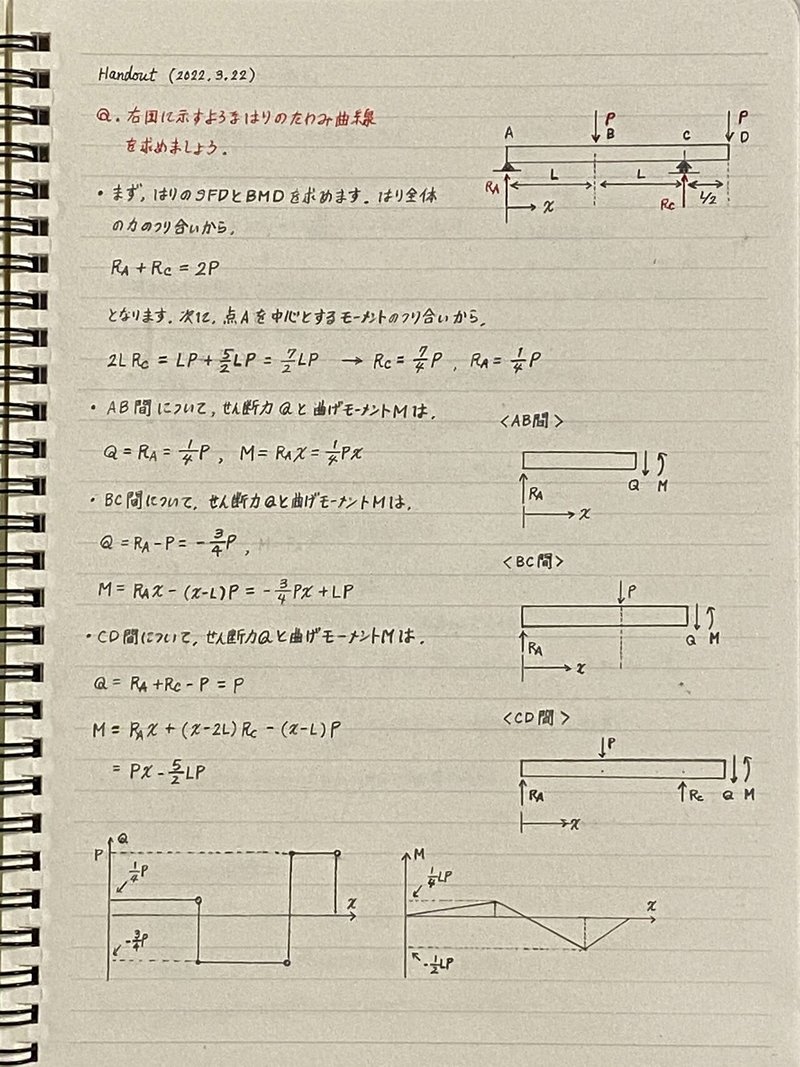 Handout (2022.3.22)
Q. 右図に示すようなはりのたわみ曲線
を求めましょう.
P
P
A
B
C
D
L
L
L/2
RA
RC
x
・まず, はりのSFDとBMDを求めます. はり全体
の力のつり合いから,
RA + RC = 2P
となります. 次に, 点Aを中心とするモーメントのつり合いから,
2L RC = LP + 5/2 LP = 7/2 LP → RC = 7/4 P , RA = 1/4 P
・AB間について, せん断力Qと曲げモーメントMは,
Q = RA = 1/4 P , M = RA x = 1/4 Px
<AB間>
RA
Q
M
x
・BC間について, せん断力Qと曲げモーメントMは,
Q = RA - P = - 3/4 P ,
M = RA x - (x-L)P = - 3/4 Px + LP
<BC間>
P
RA
Q
M
x
・CD間について, せん断力Qと曲げモーメントMは,
Q = RA + RC - P = P
M = RA x + (x-2L) RC - (x-L) P
= Px - 5/2 LP
<CD間>
P
RA
RC
Q
M
x
Q
P
1/4 P
x
- 3/4 P
M
1/4 LP
x
- 1/2 LP